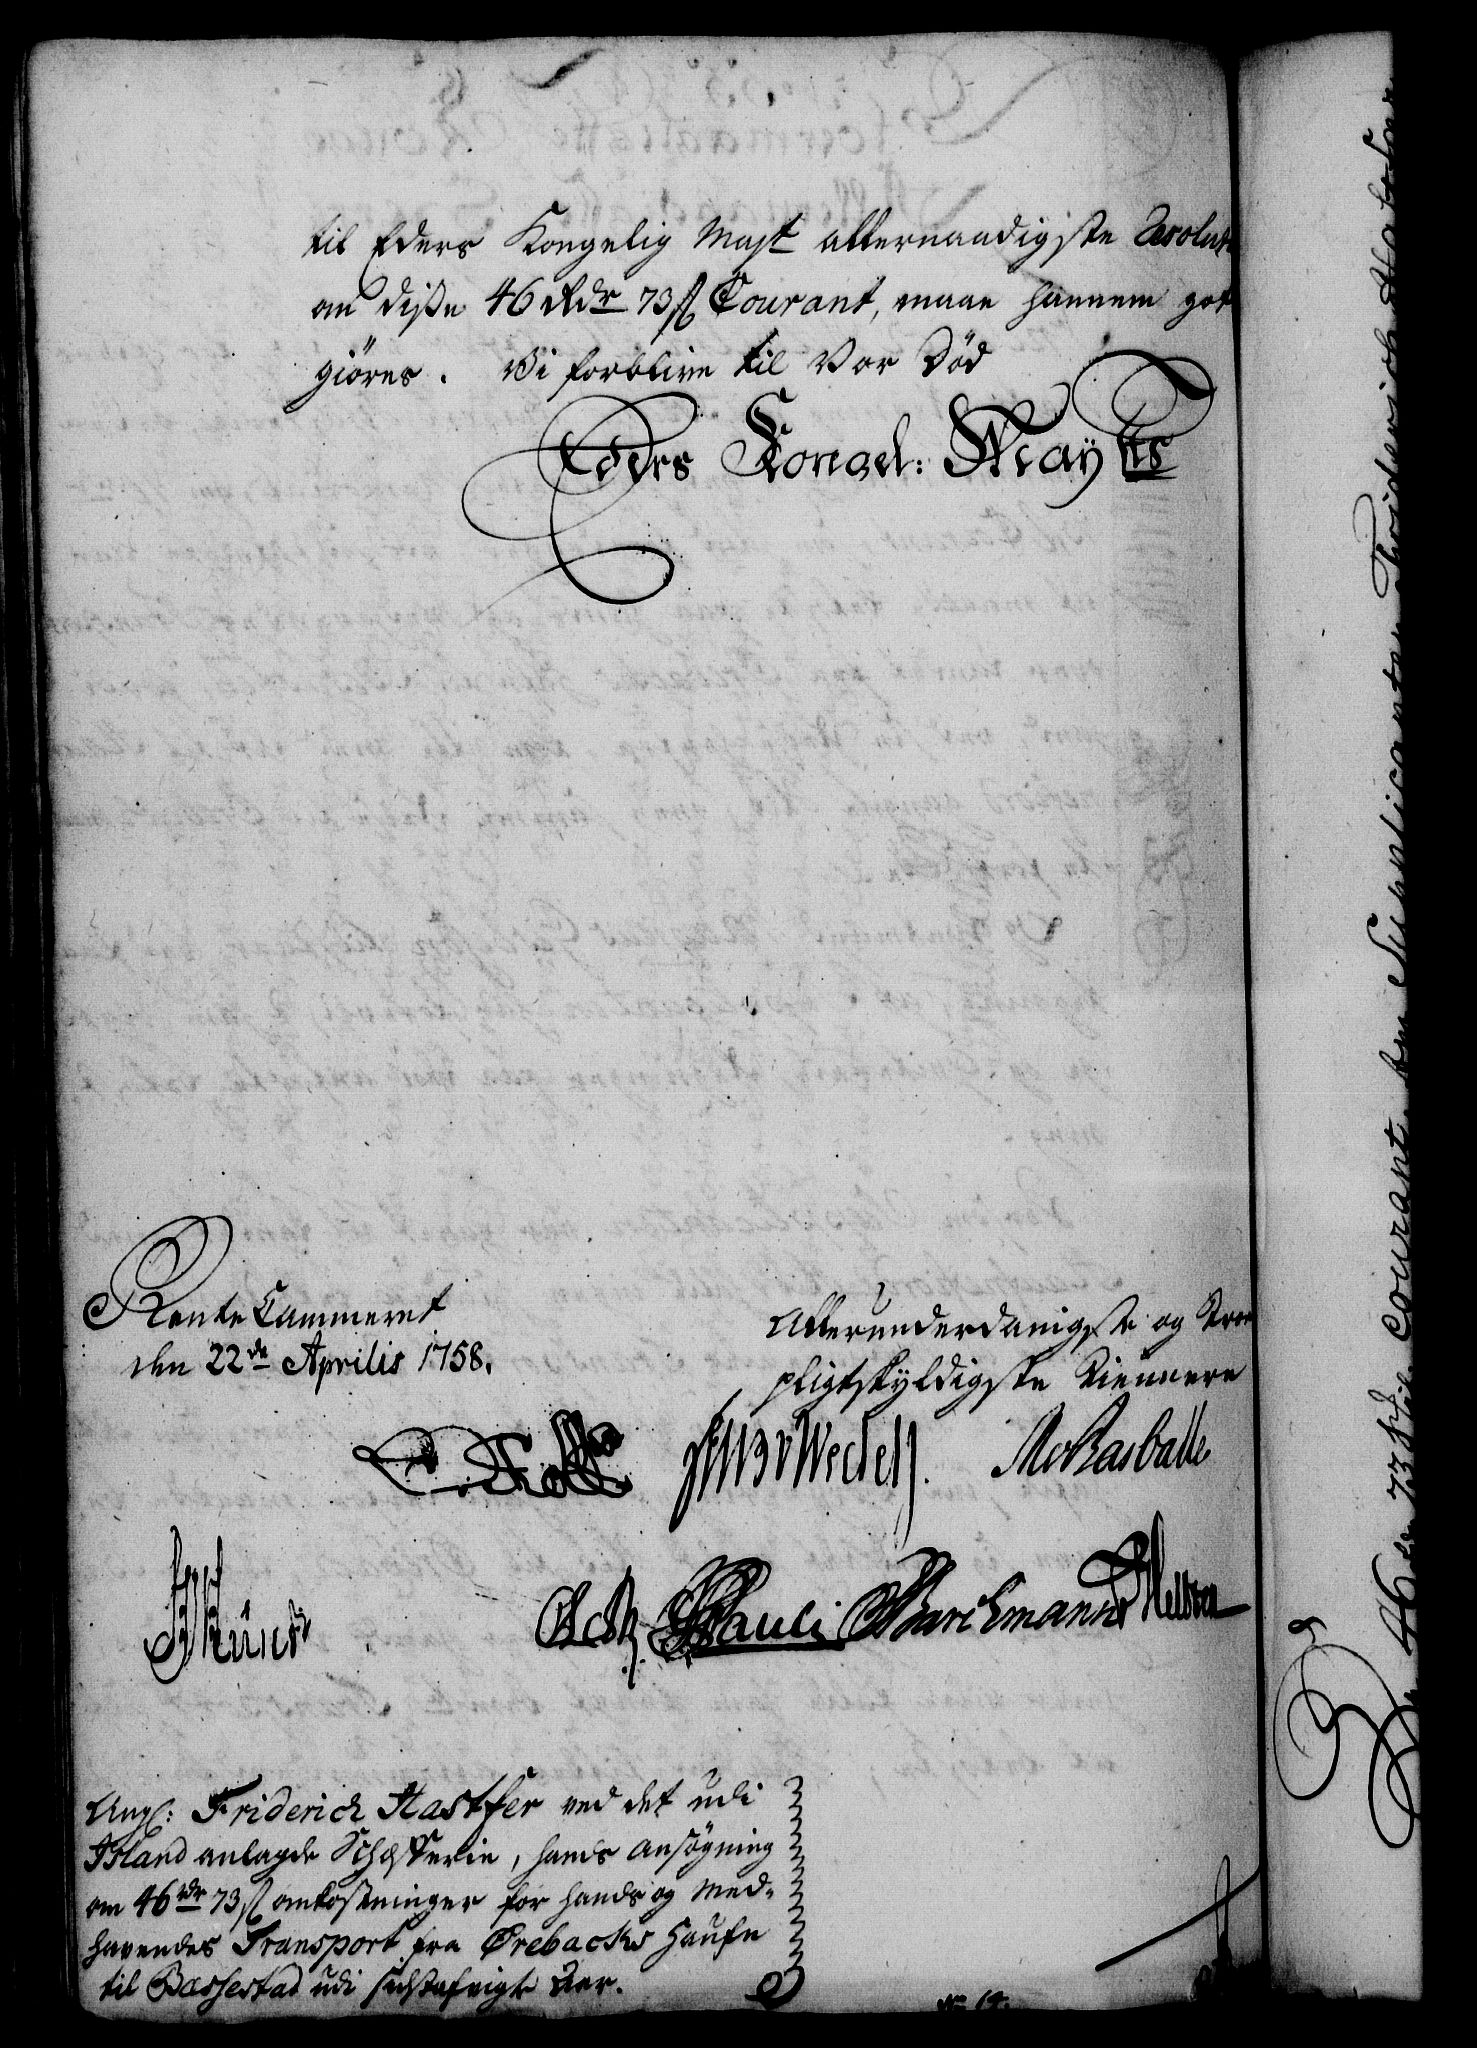 til Eders Kongelig Mayst allernaadigste Resolut
om diße 46 Rdr 73 ß Courant, maae hannem got
giöres. Vi forblive til Vor Död
Eders Kongel: Mayts
Rente Cammeret
den 22de Aprilis 1758.
Allerunderdanigste og Troe
pligtskyldigste Tiennere
Wedell
Rasballe
Pauli Barchmann
Ang: Friderich Hastfer ved det udi
Island anlagde Schæfferie, hands ansögning
om 46 rdr 73 ß omkostninger for hands og med-
havendes Transport fra Örebacks Haufn
til Bæssestad udi sidstafvigte Aar.
No 14.
46 rdr 73 ß Courant, den Supplicanten Friderich Hastfer